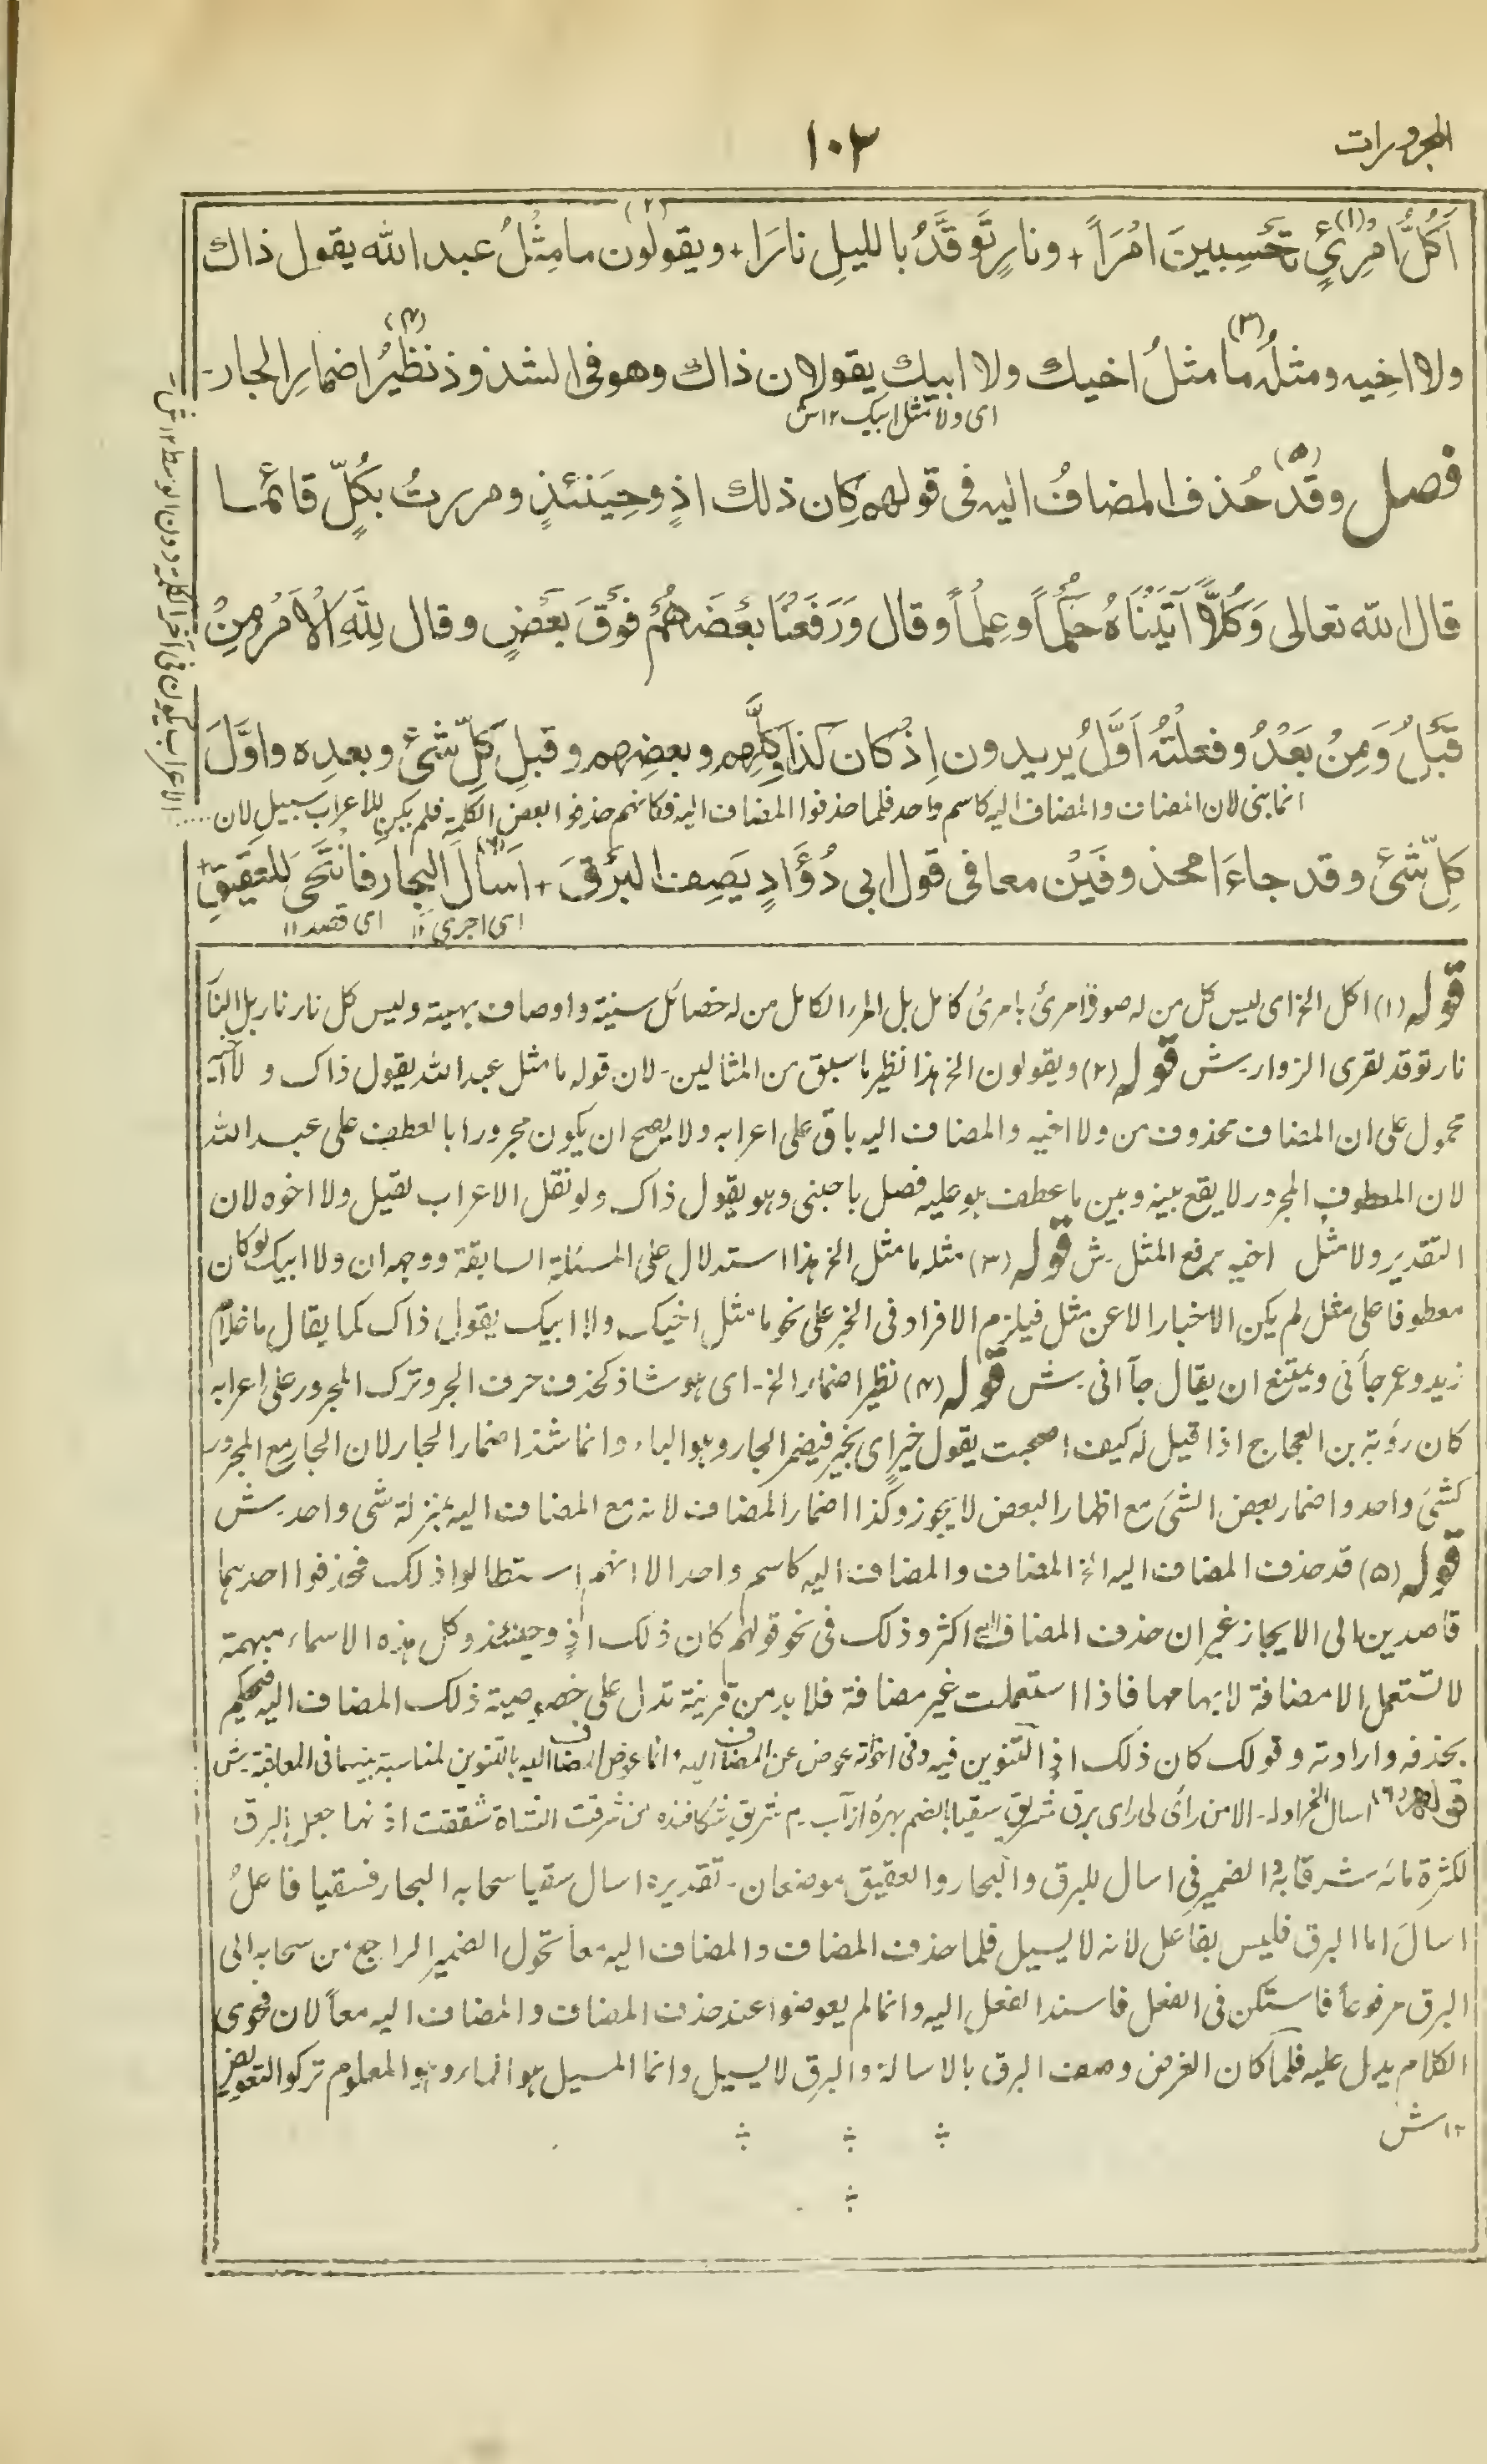 المجرورات
١٠٣
اَكُلَّ امْرِئٍ (١) تَحْسِبِينَ امْرَأً + ونارٍ تَوَقَّدُ بالليلِ نارَا + (٢) ويقولون ما مِثْلُ عبد الله يقول ذاك
ولا اخِيه ومثلُه (٣) ما مثلُ اخيك ولا ابيكِ يقولان ذاك وهو فى الشذوذ نظيرُ (٤) اضمارِ الجار-
اى ولا مثل ابيك ١٢ ش
فصل وقد (٥) حُذف المضافُ اليه فى قولهم كان ذلك اذٍ وحِيْنَئذٍ ومررتُ بكُلٍّ قائما
قال الله تعالى وَكُلًّا آتَيْنَاهُ حُكْماً وعِلْماً وقال وَرَفَعْنَا بَعْضَهُمْ فَوْقَ بَعْضٍ وقال لِلّٰهِ الْاَمْرُ مِنْ
قَبْلُ وَمِنْ بَعْدُ وفعلتُه اَوَّلُ يريدون اِذْ كان كذا وكلَّهم وبعضِهم وقبلِ كلِّ شئ وبعدِه واوَّلَ
انما بنى لان المضاف والمضاف اليه كاسم واحد فلما حذفوا المضاف اليه فكانهم حذفوا بعض الكلمة فلم يكن للاعراب سبيل لان .....
الاعراب يكون فى آخر الكلمة دون الوسط ١٢ ش-
كلِّ شئ وقد جاءَا محذوفَيْن معا فى قول ابى دُؤَادٍ يَصِف البَرْقَ + اَسَالَ (٦) البحارَ فانْتَحَى لِلْعَقِيقِ +
اى اجرى ١٢ اى قصد ١٢
قوله (١) اكل الخ اى ليس كل من له صورة امرئ بامرئ كامل بل المرء الكامل من له خصائل سنية واوصاف بهية وليس كل نار نار بل النار
نار توقد لقرى الزوار- ش قوله (٢) ويقولون الخ هذا نظير ما سبق من المثالين- لان قوله ما مثل عبد الله يقول ذاك و لا اخيه
محمول على ان المضاف محذوف من ولا اخيه والمضاف اليه باق على اعرابه ولا يصح ان يكون مجرورا بالعطف على عبد الله
لان المعطوف المجرور لا يقع بينه وبين ما عطف هو عليه فصل باجنبى وهو يقول ذاك ولو نقل الاعراب لقيل ولا اخوه لان
التقدير ولا مثل اخيه برفع المثل- ش قوله (٣) مثله ما مثل الخ هذا استدلال على المسئلة السابقة ووجهه ان ولا ابيك لو كان
معطوفا على مثل لم يكن الاخبار الا عن مثل فيلزم الافراد فى الخبر على نحو ما مثل اخيك ولا ابيك يقول ذاك كما يقال ما غلام
زيد وعمر جاءنى ويمتنع ان يقال جاآنى- ش قوله (٤) نظير اضمار الخ- اى هو شاذ كحذف حرف الجر وترك المجرور على اعرابه
كان رؤبة بن العجاج اذا قيل له كيف اصبحت يقول خيرٍ اى بخير فيضمر الجار وهو الباء وانما شذ اضمار الجار لان الجار مع المجرور
كشئ واحد واضمار بعض الشئ مع اظهار البعض لا يجوز وكذا اضمار المضاف لانه مع المضاف اليه بمنزلة شئ واحد- ش
قوله (٥) قد حذف المضاف اليه الخ المضاف والمضاف اليه كاسم واحد الا انهم استطالوا ذلك فحذفوا احدهما
قاصدين الى الايجاز غير ان حذف المضاف اليه اكثر وذلك فى نحو قولهم كان ذلك اذٍ وحينئذ وكل هذه الاسماء مبهمة
لا تستعمل الا مضافة لابهامها فاذا استعملت غير مضافة فلا بد من قرينة تدل على خصوصية ذلك المضاف اليه فيحكم
بحذفه وارادته وقولك كان ذلك اذٍ التنوين فيه وفى اخواته عوض عن المضاف اليه، انما عوض المضاف اليه بالتنوين لمناسبة بينهما فى المعاقبة- ش
قوله (٦) اسال الخ اوله- الا من رأى لى راى برق شريق- سقيا بالضم بهرۀ از آب- م شريق شكافنده من شرقت الشاة شققت اذنها جعل البرق
لكثرة مائه شرقا به والضمير فى اسال للبرق والبحار والعقيق موضعان- تقديره اسال سقيا سحابه البحار فسقيا فاعلُ
اسالَ اما البرق فليس بفاعل لانه لا يسيل فلما حذف المضاف والمضاف اليه معا تحول الضمير الراجع من سحابه الى
البرق مرفوعاً فاستكن فى الفعل فاسند الفعل اليه وانما لم يعوضوا عند حذف المضاف والمضاف اليه معاً لان فحوى
الكلام يدل عليه فلما كان الغرض وصف البرق بالاسالة والبرق لا يسيل وانما المسيل هو الماء وهو المعلوم تركوا التعويض
١٢ ش